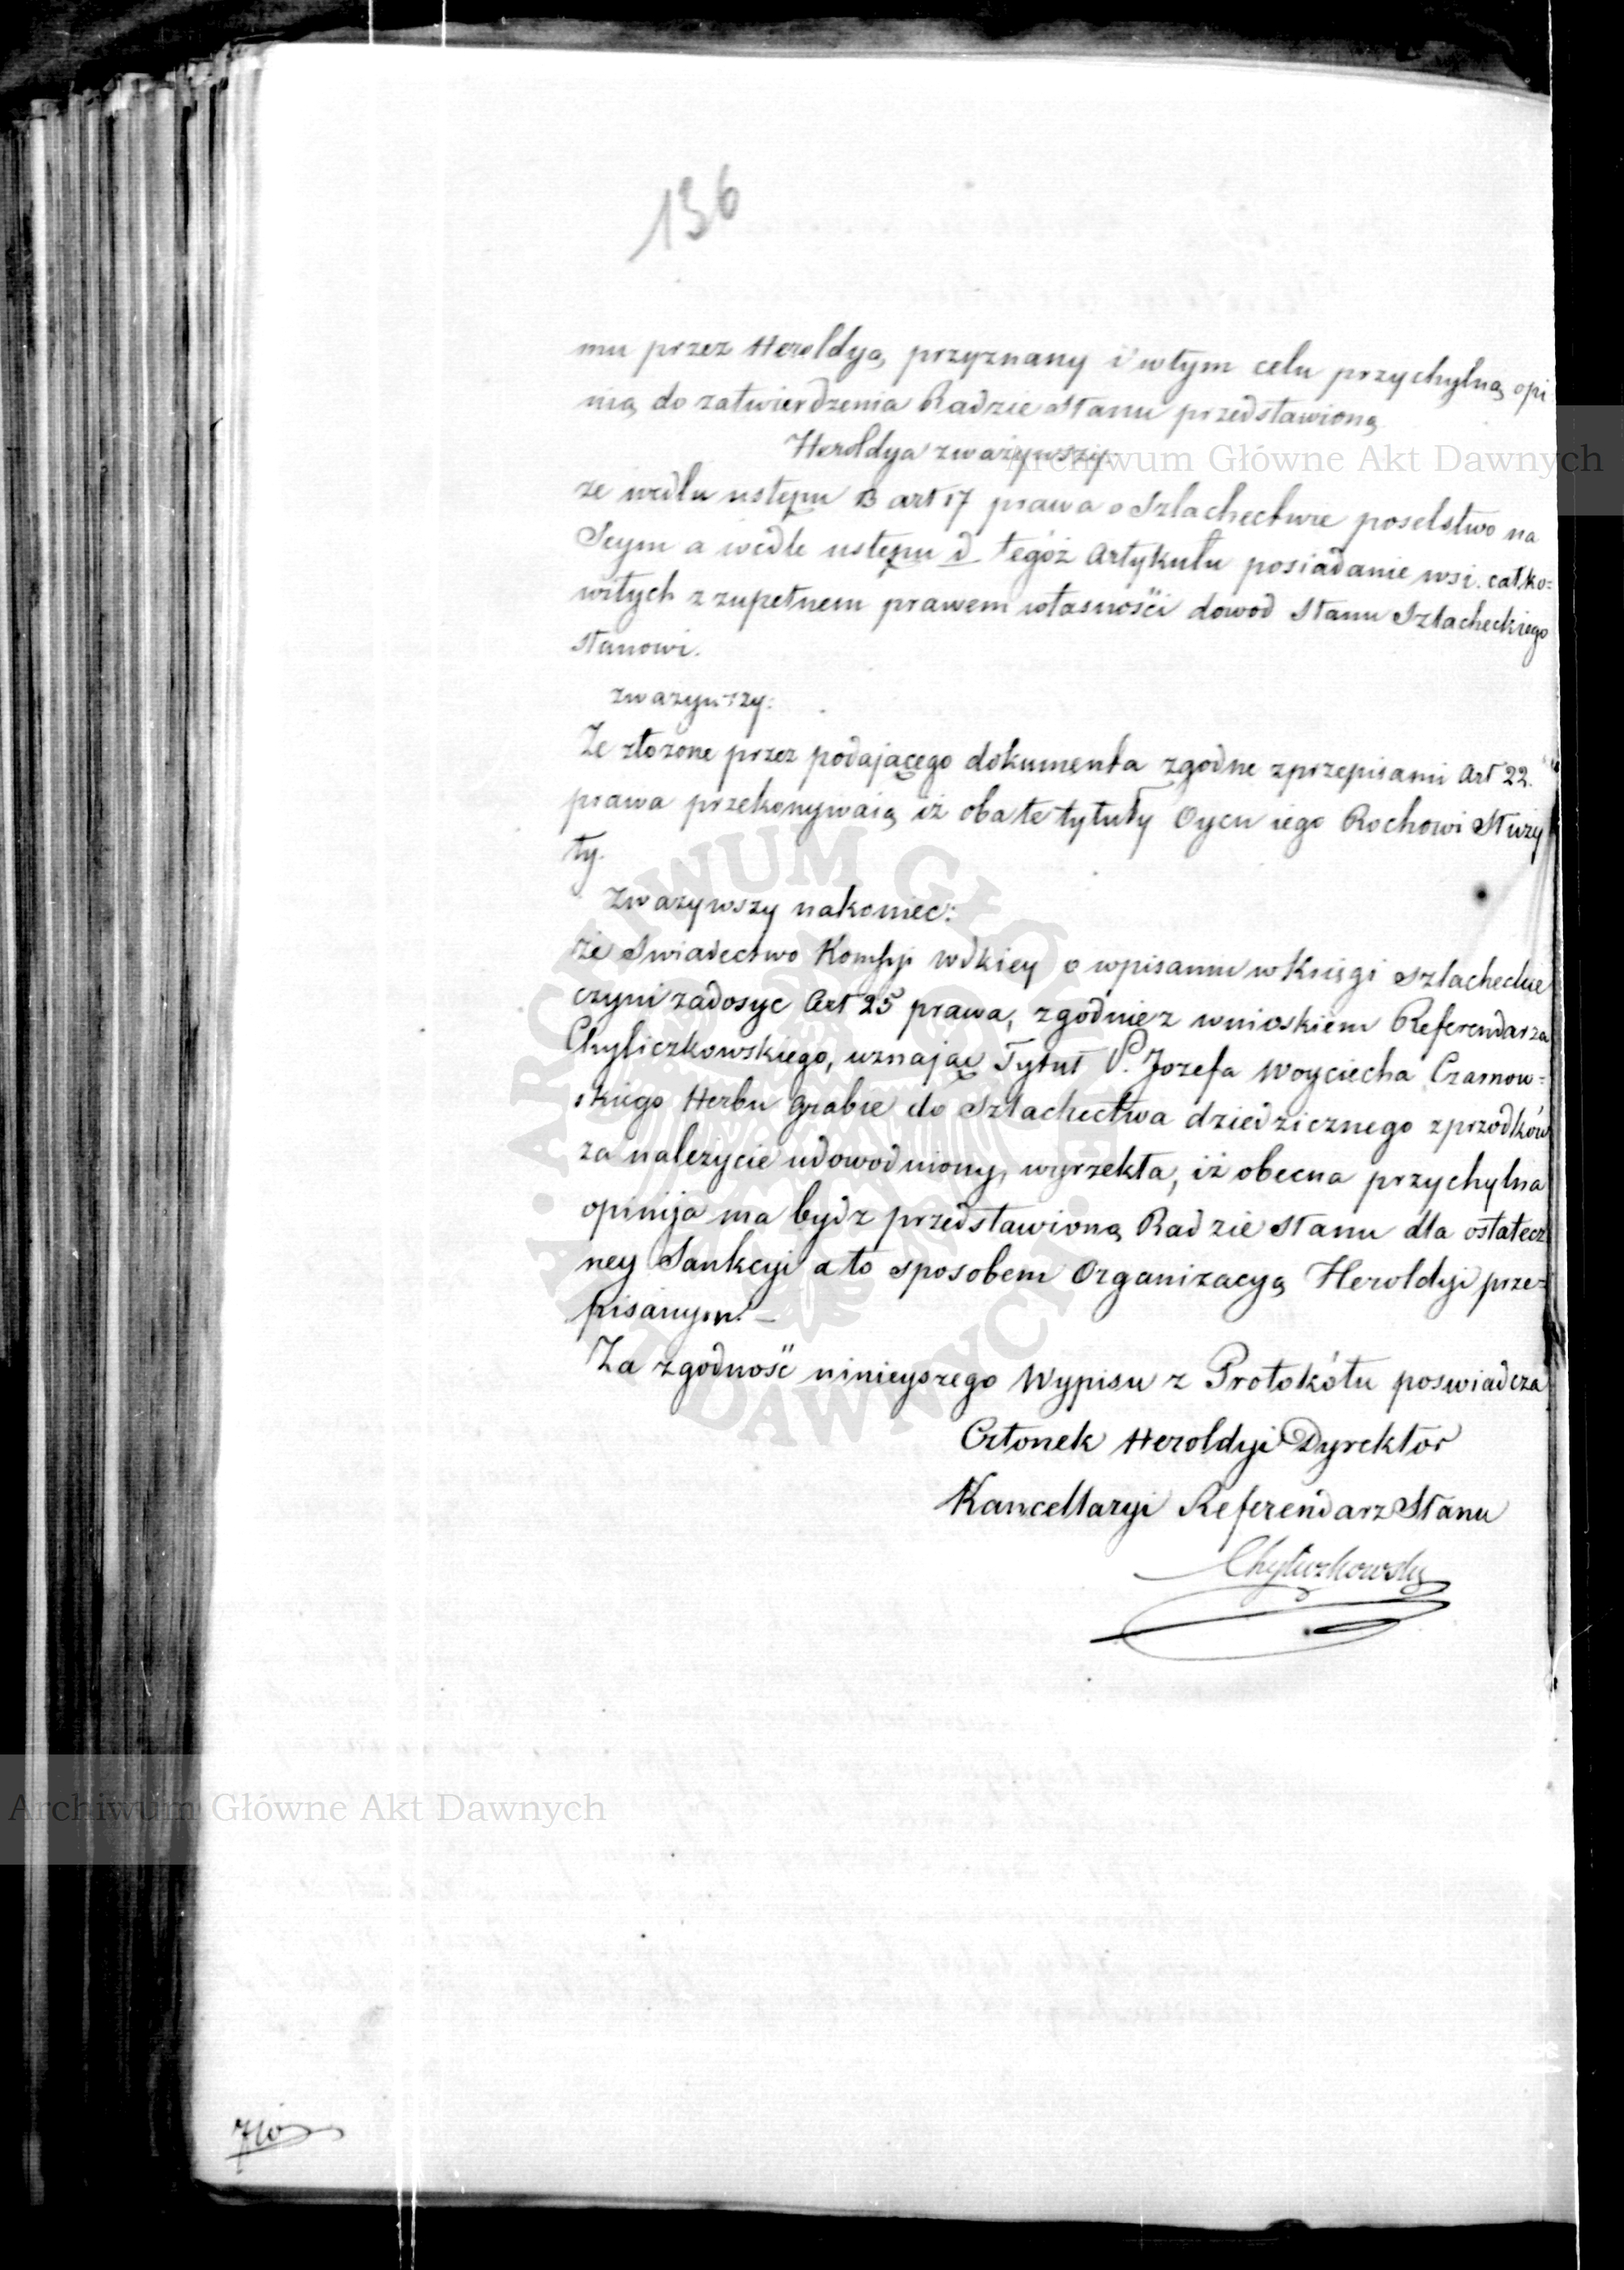 136
mu przez Heroldyą przyznany i w tym celu przychylną opi
nią do zatwierdzenia Radzie Stanu przedstawioną
Heroldya zważywszy.
Archiwum Główne Akt Dawnych
ze wedlu ustępu B art 17 prawa o Szlachectwie poselstwo na
Seym a wedle ustępu d tegóż Artykułu posiadanie wsi całko=
witych z zupełnem prawem własności dowod Stanu Szlacheckiego
Stanowi.
zważywszy:
Ze złozone przez podającego dokumenta zgodne z przepisami Art 22.
prawa przekonywaią iż oba te tytuły Oycu iego Rochowi Służy
ły.
Zwazywszy nakoniec:
że Swiadectwo Kommissyi Wdkiey o wpisaniu w Księgi Szlacheckie
czyni zadosyc Art 25 prawa, zgodnie z wnioskiem Referendarza
Chyliczkowskiego, uznając Tytuł P. Jozefa Woyciecha Czarnow=
skiego Herbu Grabie do Szlachectwa dziedzicznego z przodków
za nalezycie udowodniony, wyrzekła, iż obecna przychylna
opinija ma bydz przedstawioną Radzie Stanu dla ostatecz
ney Sankcyi a to sposobem Organizacyą Heroldyi prze=
pisanym. —
Za zgodność ninieyszego Wypisu z Protokółu poswiadcza
Członek Heroldyi Dyrektor
Kancellaryi Referendarz Stanu
Chyliczkowski
Archiwum Główne Akt Dawnych
ARCHIWUM GŁÓWNE AKT DAWNYCH